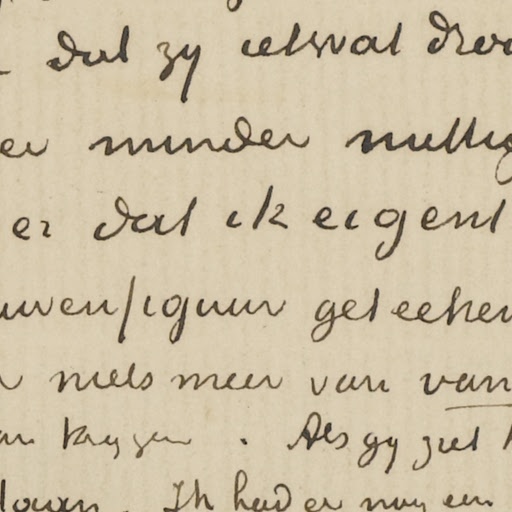 dat zy ietwat droo
er minder nuttig
er dat ik eigent
uwenfiguur geteeken
niets meer van van
krygen. Als gy ziet
Ik had er nog een